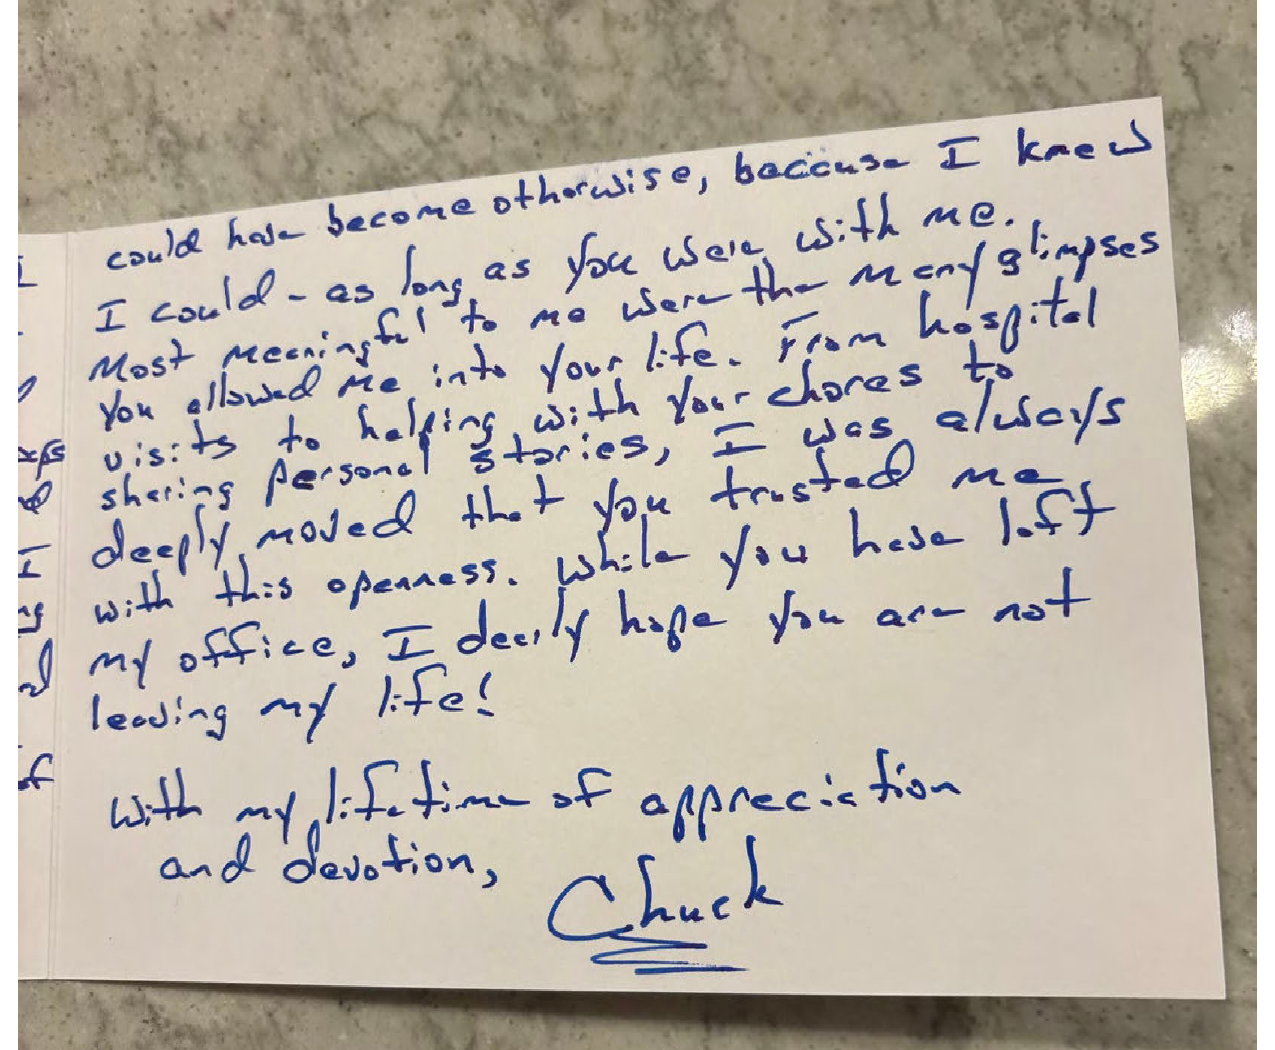 could have become otherwise, because I knew
I could - as long as you were with me.
Most meaningful to me were the many glimpses
you allowed me into your life. From hospital
visits to helping with your chores to
sharing personal stories, I was always
deeply moved that you trusted me
with this openness. While you have left
my office, I dearly hope you are not
leaving my life!
With my lifetime of appreciation
and devotion,
Chuck